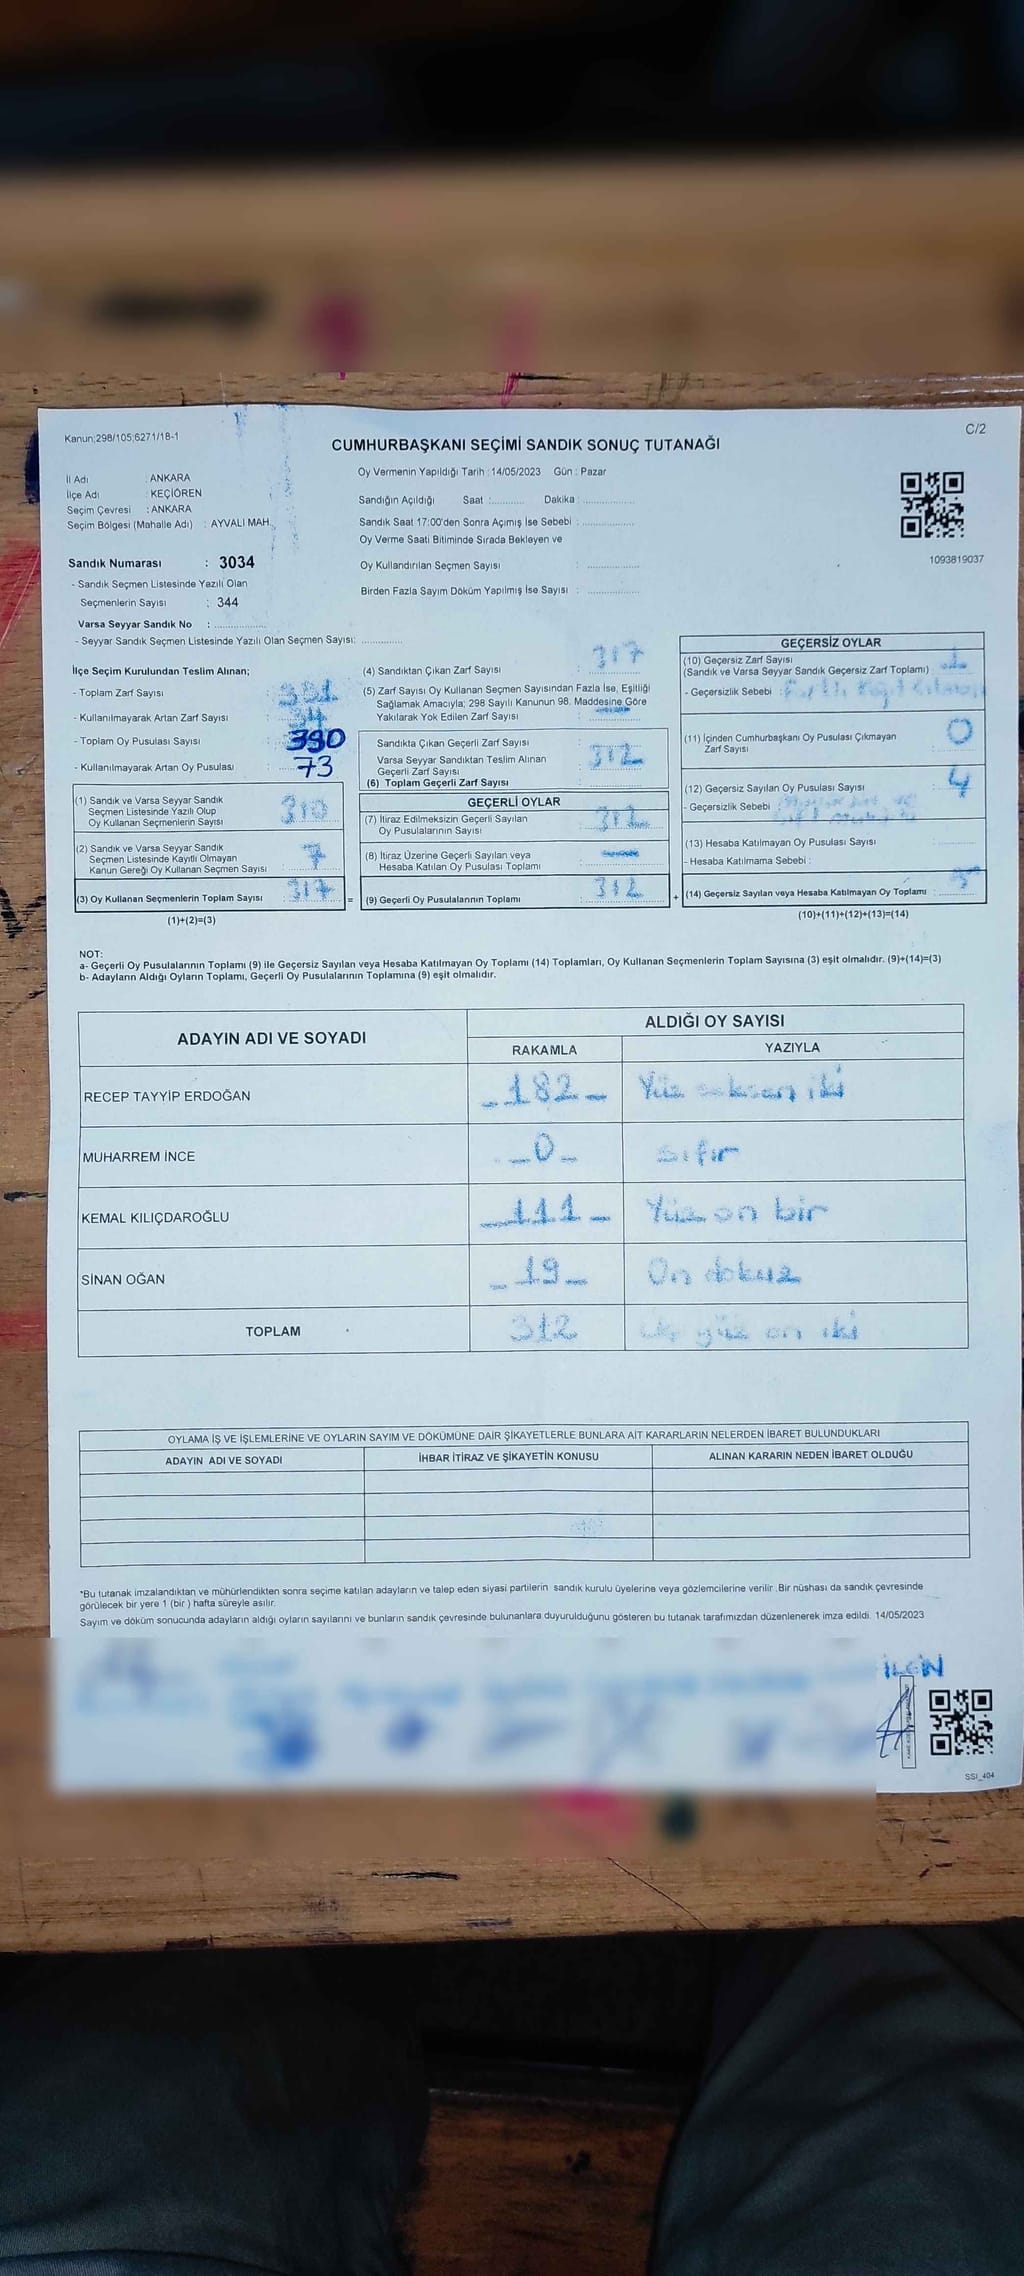 Kanun;298/105;6271/18-1
C/2
CUMHURBAŞKANI SEÇİMİ SANDIK SONUÇ TUTANAĞI
Oy Vermenin Yapıldığı Tarih : 14/05/2023 Gün : Pazar
İl Adı : ANKARA
İlçe Adı : KEÇİÖREN
Seçim Çevresi : ANKARA
Seçim Bölgesi (Mahalle Adı) : AYVALI MAH.
Sandığın Açıldığı Saat :........... Dakika :................
Sandık Saat 17:00'den Sonra Açımış İse Sebebi :................
Oy Verme Saati Bitiminde Sırada Bekleyen ve
Oy Kullandırılan Seçmen Sayısı : ................
Birden Fazla Sayım Döküm Yapılmış İse Sayısı : ................
1093819037
Sandık Numarası : 3034
- Sandık Seçmen Listesinde Yazılı Olan
Seçmenlerin Sayısı : 344
Varsa Seyyar Sandık No : ................
- Seyyar Sandık Seçmen Listesinde Yazılı Olan Seçmen Sayısı: .............
İlçe Seçim Kurulundan Teslim Alınan;
- Toplam Zarf Sayısı :
- Kullanılmayarak Artan Zarf Sayısı :
- Toplam Oy Pusulası Sayısı : 390
- Kullanılmayarak Artan Oy Pusulası : 73
(1) Sandık ve Varsa Seyyar Sandık
Seçmen Listesinde Yazılı Olup
Oy Kullanan Seçmenlerin Sayısı : 310
(2) Sandık ve Varsa Seyyar Sandık
Seçmen Listesinde Kayıtlı Olmayan
Kanun Gereği Oy Kullanan Seçmen Sayısı : 7
(3) Oy Kullanan Seçmenlerin Toplam Sayısı : 317
(1)+(2)=(3)
(4) Sandıktan Çıkan Zarf Sayısı : 317
(5) Zarf Sayısı Oy Kullanan Seçmen Sayısından Fazla İse, Eşitliği
Sağlamak Amacıyla; 298 Sayılı Kanunun 98. Maddesine Göre
Yakılarak Yok Edilen Zarf Sayısı :
Sandıkta Çıkan Geçerli Zarf Sayısı
Varsa Seyyar Sandıktan Teslim Alınan
Geçerli Zarf Sayısı
(6) Toplam Geçerli Zarf Sayısı : 312
GEÇERLİ OYLAR
(7) İtiraz Edilmeksizin Geçerli Sayılan
Oy Pusulalarının Sayısı : 312
(8) İtiraz Üzerine Geçerli Sayılan veya
Hesaba Katılan Oy Pusulası Toplamı :
= (9) Geçerli Oy Pusulalarının Toplamı : 312 +
GEÇERSİZ OYLAR
(10) Geçersiz Zarf Sayısı
(Sandık ve Varsa Seyyar Sandık Geçersiz Zarf Toplamı) : 1
- Geçersizlik Sebebi :
(11) İçinden Cumhurbaşkanı Oy Pusulası Çıkmayan
Zarf Sayısı : 0
(12) Geçersiz Sayılan Oy Pusulası Sayısı : 4
- Geçersizlik Sebebi :
(13) Hesaba Katılmayan Oy Pusulası Sayısı :
- Hesaba Katılmama Sebebi :
(14) Geçersiz Sayılan veya Hesaba Katılmayan Oy Toplamı : 5
(10)+(11)+(12)+(13)=(14)
NOT:
a- Geçerli Oy Pusulalarının Toplamı (9) ile Geçersiz Sayılan veya Hesaba Katılmayan Oy Toplamı (14) Toplamları, Oy Kullanan Seçmenlerin Toplam Sayısına (3) eşit olmalıdır. (9)+(14)=(3)
b- Adayların Aldığı Oyların Toplamı, Geçerli Oy Pusulalarının Toplamına (9) eşit olmalıdır.
ADAYIN ADI VE SOYADI
ALDIĞI OY SAYISI
RAKAMLA YAZIYLA
RECEP TAYYİP ERDOĞAN _182_ Yüz seksen iki
MUHARREM İNCE _0_ sıfır
KEMAL KILIÇDAROĞLU _111_ Yüz on bir
SİNAN OĞAN _19_ On dokuz
TOPLAM 312 üç yüz on iki
OYLAMA İŞ VE İŞLEMLERİNE VE OYLARIN SAYIM VE DÖKÜMÜNE DAİR ŞİKAYETLERLE BUNLARA AİT KARARLARIN NELERDEN İBARET BULUNDUKLARI
ADAYIN ADI VE SOYADI İHBAR İTİRAZ VE ŞİKAYETİN KONUSU ALINAN KARARIN NEDEN İBARET OLDUĞU
*Bu tutanak imzalandıktan ve mühürlendikten sonra seçime katılan adayların ve talep eden siyasi partilerin sandık kurulu üyelerine veya gözlemcilerine verilir .Bir nüshası da sandık çevresinde
görülecek bir yere 1 (bir ) hafta süreyle asılır.
Sayım ve döküm sonucunda adayların aldığı oyların sayılarını ve bunların sandık çevresinde bulunanlara duyurulduğunu gösteren bu tutanak tarafımızdan düzenlenerek imza edildi. 14/05/2023
SSI_404